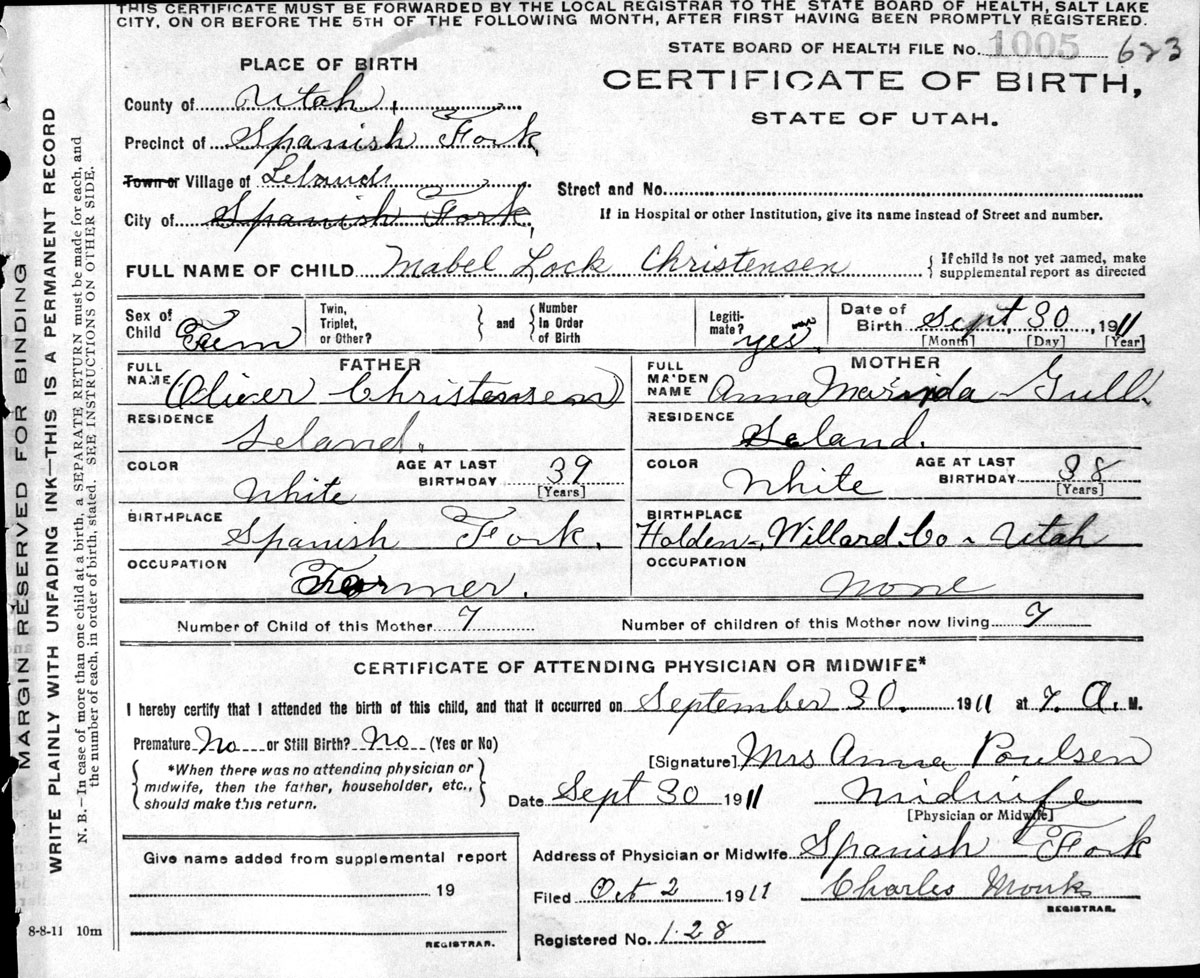 THIS CERTIFICATE MUST BE FORWARDED BY THE LOCAL REGISTRAR TO THE STATE BOARD OF HEALTH, SALT LAKE
CITY, ON OR BEFORE THE 5TH OF THE FOLLOWING MONTH, AFTER FIRST HAVING BEEN PROMPTLY REGISTERED.
STATE BOARD OF HEALTH FILE No. 1005 623
PLACE OF BIRTH
CERTIFICATE OF BIRTH,
STATE OF UTAH.
County of Utah,
Precinct of Spanish Fork,
Town or Village of Leland
City of Spanish Fork,
Street and No.
If in Hospital or other Institution, give its name instead of Street and number.
FULL NAME OF CHILD Mabel Lock Christensen { If child is not yet named, make supplemental report as directed
Sex of Child Fem
Twin, Triplet, or Other? } and { Number in Order of Birth
Legitimate? yes
Date of Birth Sept, 30, 1911
[Month] [Day] [Year]
FATHER
FULL NAME (Oliver Christensen)
RESIDENCE Leland.
COLOR White AGE AT LAST BIRTHDAY 39 [Years]
BIRTHPLACE Spanish Fork.
OCCUPATION Farmer.
MOTHER
FULL MAIDEN NAME Anna Marinda Gull.
RESIDENCE Leland.
COLOR White AGE AT LAST BIRTHDAY 38 [Years]
BIRTHPLACE Holden, Willard Co Utah
OCCUPATION none
Number of Child of this Mother 7 Number of children of this Mother now living 7
CERTIFICATE OF ATTENDING PHYSICIAN OR MIDWIFE*
I hereby certify that I attended the birth of this child, and that it occurred on September 30. 1911 at 7. A. M.
Premature No or Still Birth? No (Yes or No)
{ *When there was no attending physician or midwife, then the father, householder, etc., should make this return. }
[Signature] Mrs Anna Poulsen
Date Sept 30 1911 Midwife
[Physician or Midwife]
Give name added from supplemental report
19
REGISTRAR.
Address of Physician or Midwife Spanish Fork
Filed Oct 2 1911 Charles Monks
REGISTRAR.
Registered No. 128
MARGIN RESERVED FOR BINDING
WRITE PLAINLY WITH UNFADING INK—THIS IS A PERMANENT RECORD
N. B.—In case of more than one child at a birth, a SEPARATE RETURN must be made for each, and
the number of each, in order of birth, stated. SEE INSTRUCTIONS ON OTHER SIDE.
8-8-11 10m